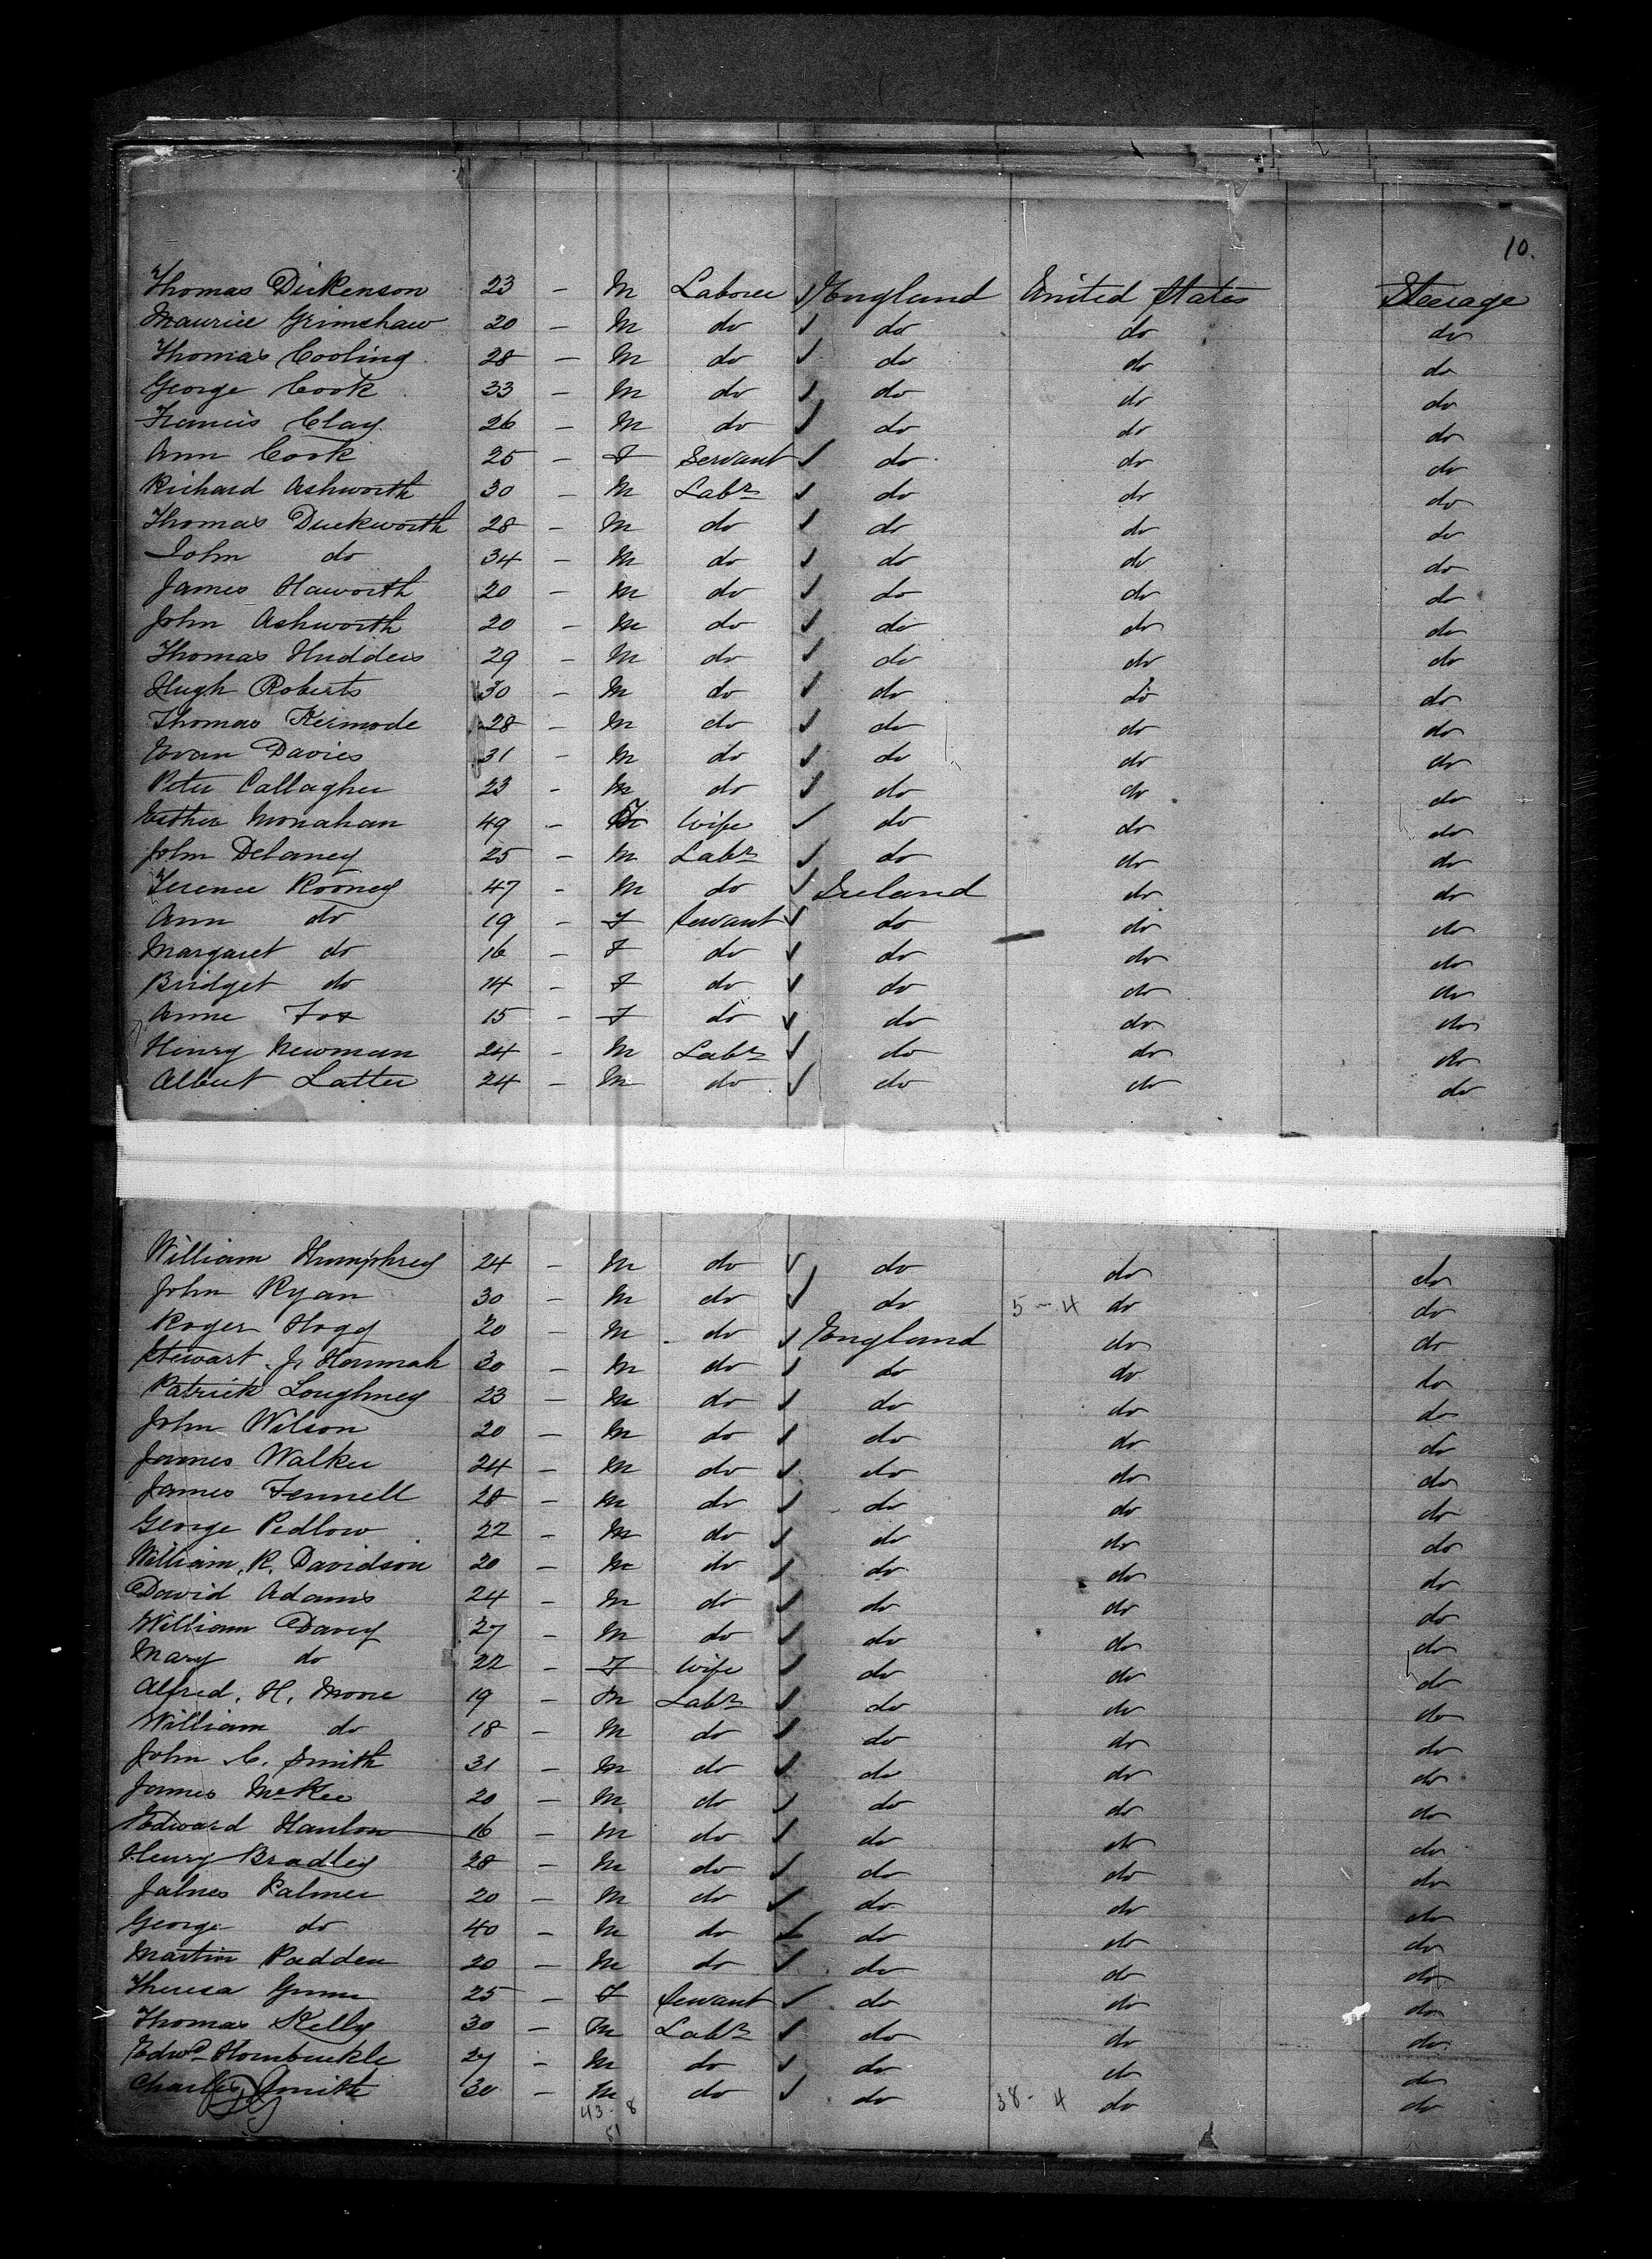 10.
Thomas Dickenson 23 - M Laborer ✓ England United States Steerage
Maurice Grimshaw 20 - M do ✓ do do do
Thomas Cooling 28 - M do ✓ do do do
George Cook 33 - M do ✓ do do do
Francis Clay 26 - M do ✓ do do do
Ann Cook 25 - F Servant ✓ do do do
Richard Ashworth 30 - M Labr ✓ do do do
Thomas Duckworth 28 - M do ✓ do do do
John do 34 - M do ✓ do do do
James Haworth 20 - M do ✓ do do do
John Ashworth 20 - M do ✓ do do do
Thomas Hudders 29 - M do ✓ do do do
Hugh Roberts 30 - M do ✓ do do do
Thomas Kermode 28 - M do ✓ do do do
Evan Davies 31 - M do ✓ do do do
Peter Callagher 23 - M do ✓ do do do
Esther Monahan 49 - F Wife ✓ do do do
John Delaney 25 - M Labr ✓ do do do
Terence Rooney 47 - M do ✓ Ireland do do
Ann do 19 - F Servant ✓ do do do
Margaret do 16 - F do ✓ do do do
Bridget do 14 - F do ✓ do do do
Anne Fox 15 - F do ✓ do do do
Henry Newman 24 - M Labr ✓ do do do
Albert Latter 24 - M do ✓ do do do
William Humphrey 24 - M do ✓ do do do
John Ryan 30 - M do ✓ do 5 - 4 do do
Roger Hogg 20 - M do ✓ England do do
Stewart. J. Hannah 30 - M do ✓ do do do
Patrick Loughney 23 - M do ✓ do do do
John Wilson 20 - M do ✓ do do do
James Walker 24 - M do ✓ do do do
James Fennell 28 - M do ✓ do do do
George Pedlow 22 - M do ✓ do do do
William. R. Davidson 20 - M do ✓ do do do
David Adams 24 - M do ✓ do do do
William Davey 27 - M do ✓ do do do
Mary do 22 - F Wife ✓ do do do
Alfred. H. Moore 19 - M Labr ✓ do do do
William do 18 - M do ✓ do do do
John C. Smith 31 - M do ✓ do do do
James McKee 20 - M do ✓ do do do
Edward Hanlon 16 - M do ✓ do do do
Henry Bradley 28 - M do ✓ do do do
James Palmer 20 - M do ✓ do do do
George do 40 - M do ✓ do do do
Martin Padden 20 - M do ✓ do do do
Theresa 25 - F Servant ✓ do do do
Thomas Kelly 30 - M Labr ✓ do do do
Edwd Hornbuckle 27 - M do ✓ do do do
Charles Smith 30 - M do ✓ do 38 - 4 do do
43 - 8
51